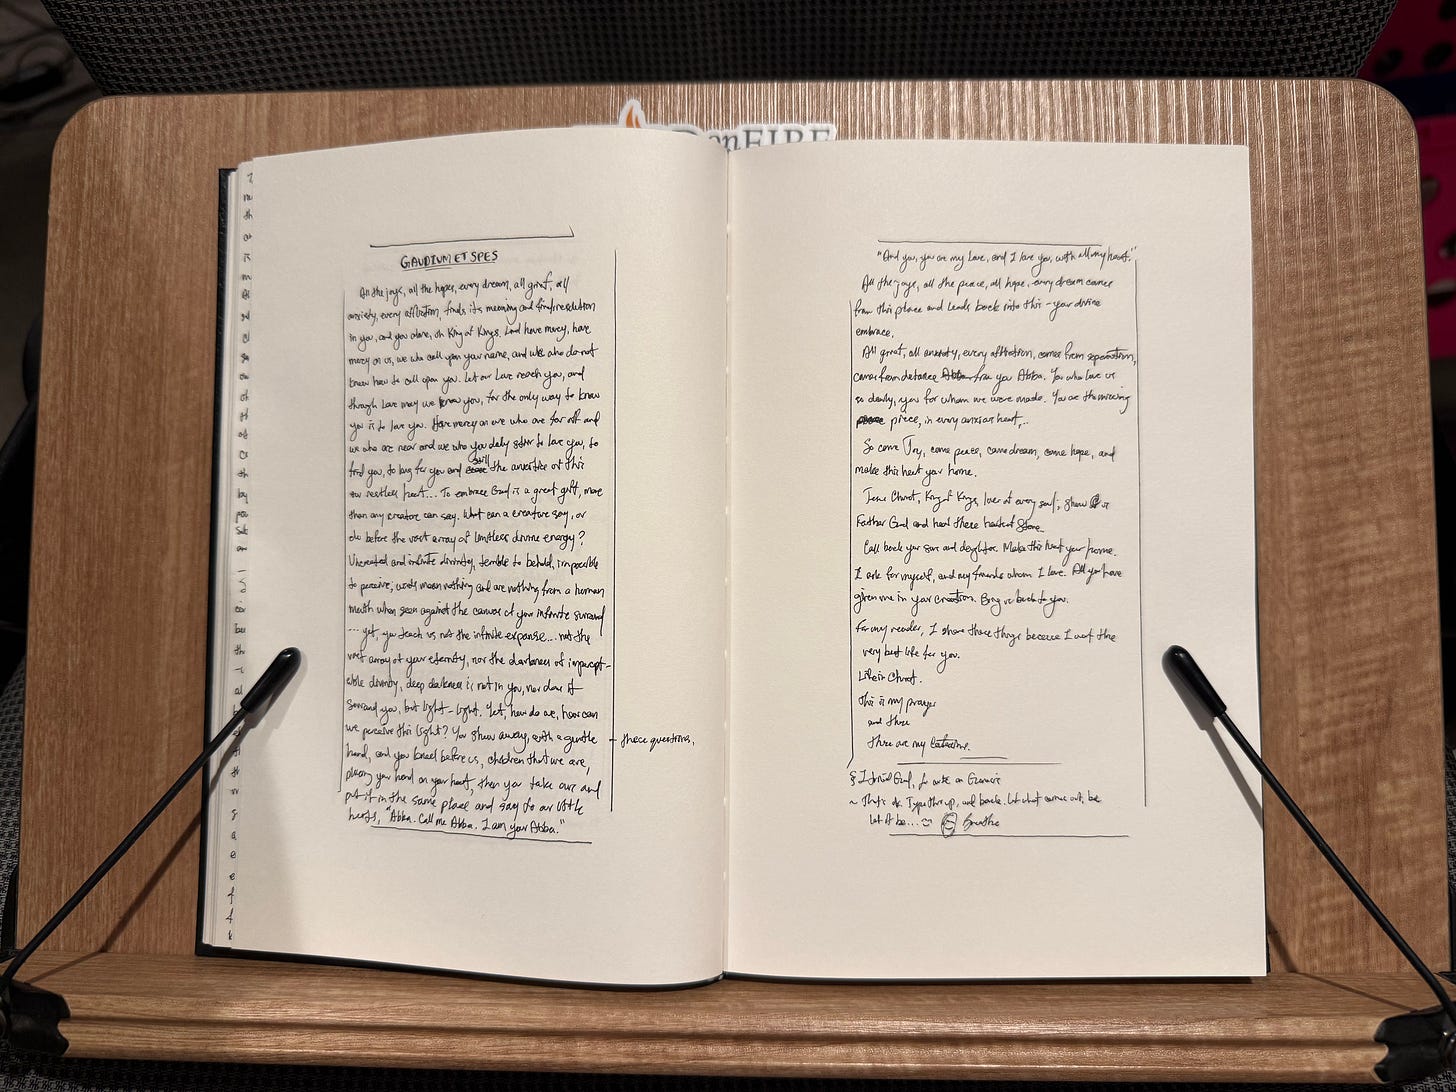 GAUDIUM ET SPES
All the joys, all the hopes, every dream, all grief, all
anxiety, every affliction, finds its meaning and final resolution
in you, and you alone, oh King of Kings. Lord have mercy, have
mercy on us, we who call upon your name, and we who do not
know how to call upon you. Let our Love reach you, and
through Love may we know you, for the only way to know
you is to love you. Have mercy on we who are far off and
we who are near and we who daily strive to love you, to
find you, to long for you and still the anxieties of this
our restless heart... To embrace God is a great gift, more
than any creature can say. What can a creature say, or
do before the vast array of limitless divine energy?
Uncreated and infinite divinity, terrible to behold, impossible
to perceive, words mean nothing and are nothing from a human
mouth when seen against the canvas of your infinite surround
... yet, you teach us not the infinite expanse... not the
vast array of your eternity, nor the darkness of impercept-
ible divinity, deep darkness is not in you, nor does it
surround you, but light - light. Yet, how do we, how can
we perceive this light? You show away, with a gentle
these questions,
hand, and you kneel before us, children that we are,
placing your hand on your heart, then you take our and
put it in the same place and say to our little
hearts, "Abba. Call me Abba. I am your Abba."
"And you, you are my Love, and I love you, with all my heart."
All the joys, all the peace, all hope, every dream comes
from this place and leads back into this - your divine
embrace.
All grief, all anxiety, every affliction, comes from separation,
comes from distance from you Abba. You who love us
so dearly, you for whom we were made. You are the missing
piece, in every anxious heart,..
So come Joy, come peace, come dream, come hope, and
make this heart your home.
Jesus Christ, King of Kings, lover of every soul, show us
Father God and heal these hearts of Stone.
Call back your sons and daughters. Make this heart your home.
I ask for myself, and my friends whom I love. All you have
given me in your creation. Bring us back to you.
For my reader, I share these things because I want the
very best life for you.
Life in Christ.
This is my prayer
and these
these are my
God, for
That's ok. Type this up, and back. Let what comes out, be
let it be... Breathe
onFIRE